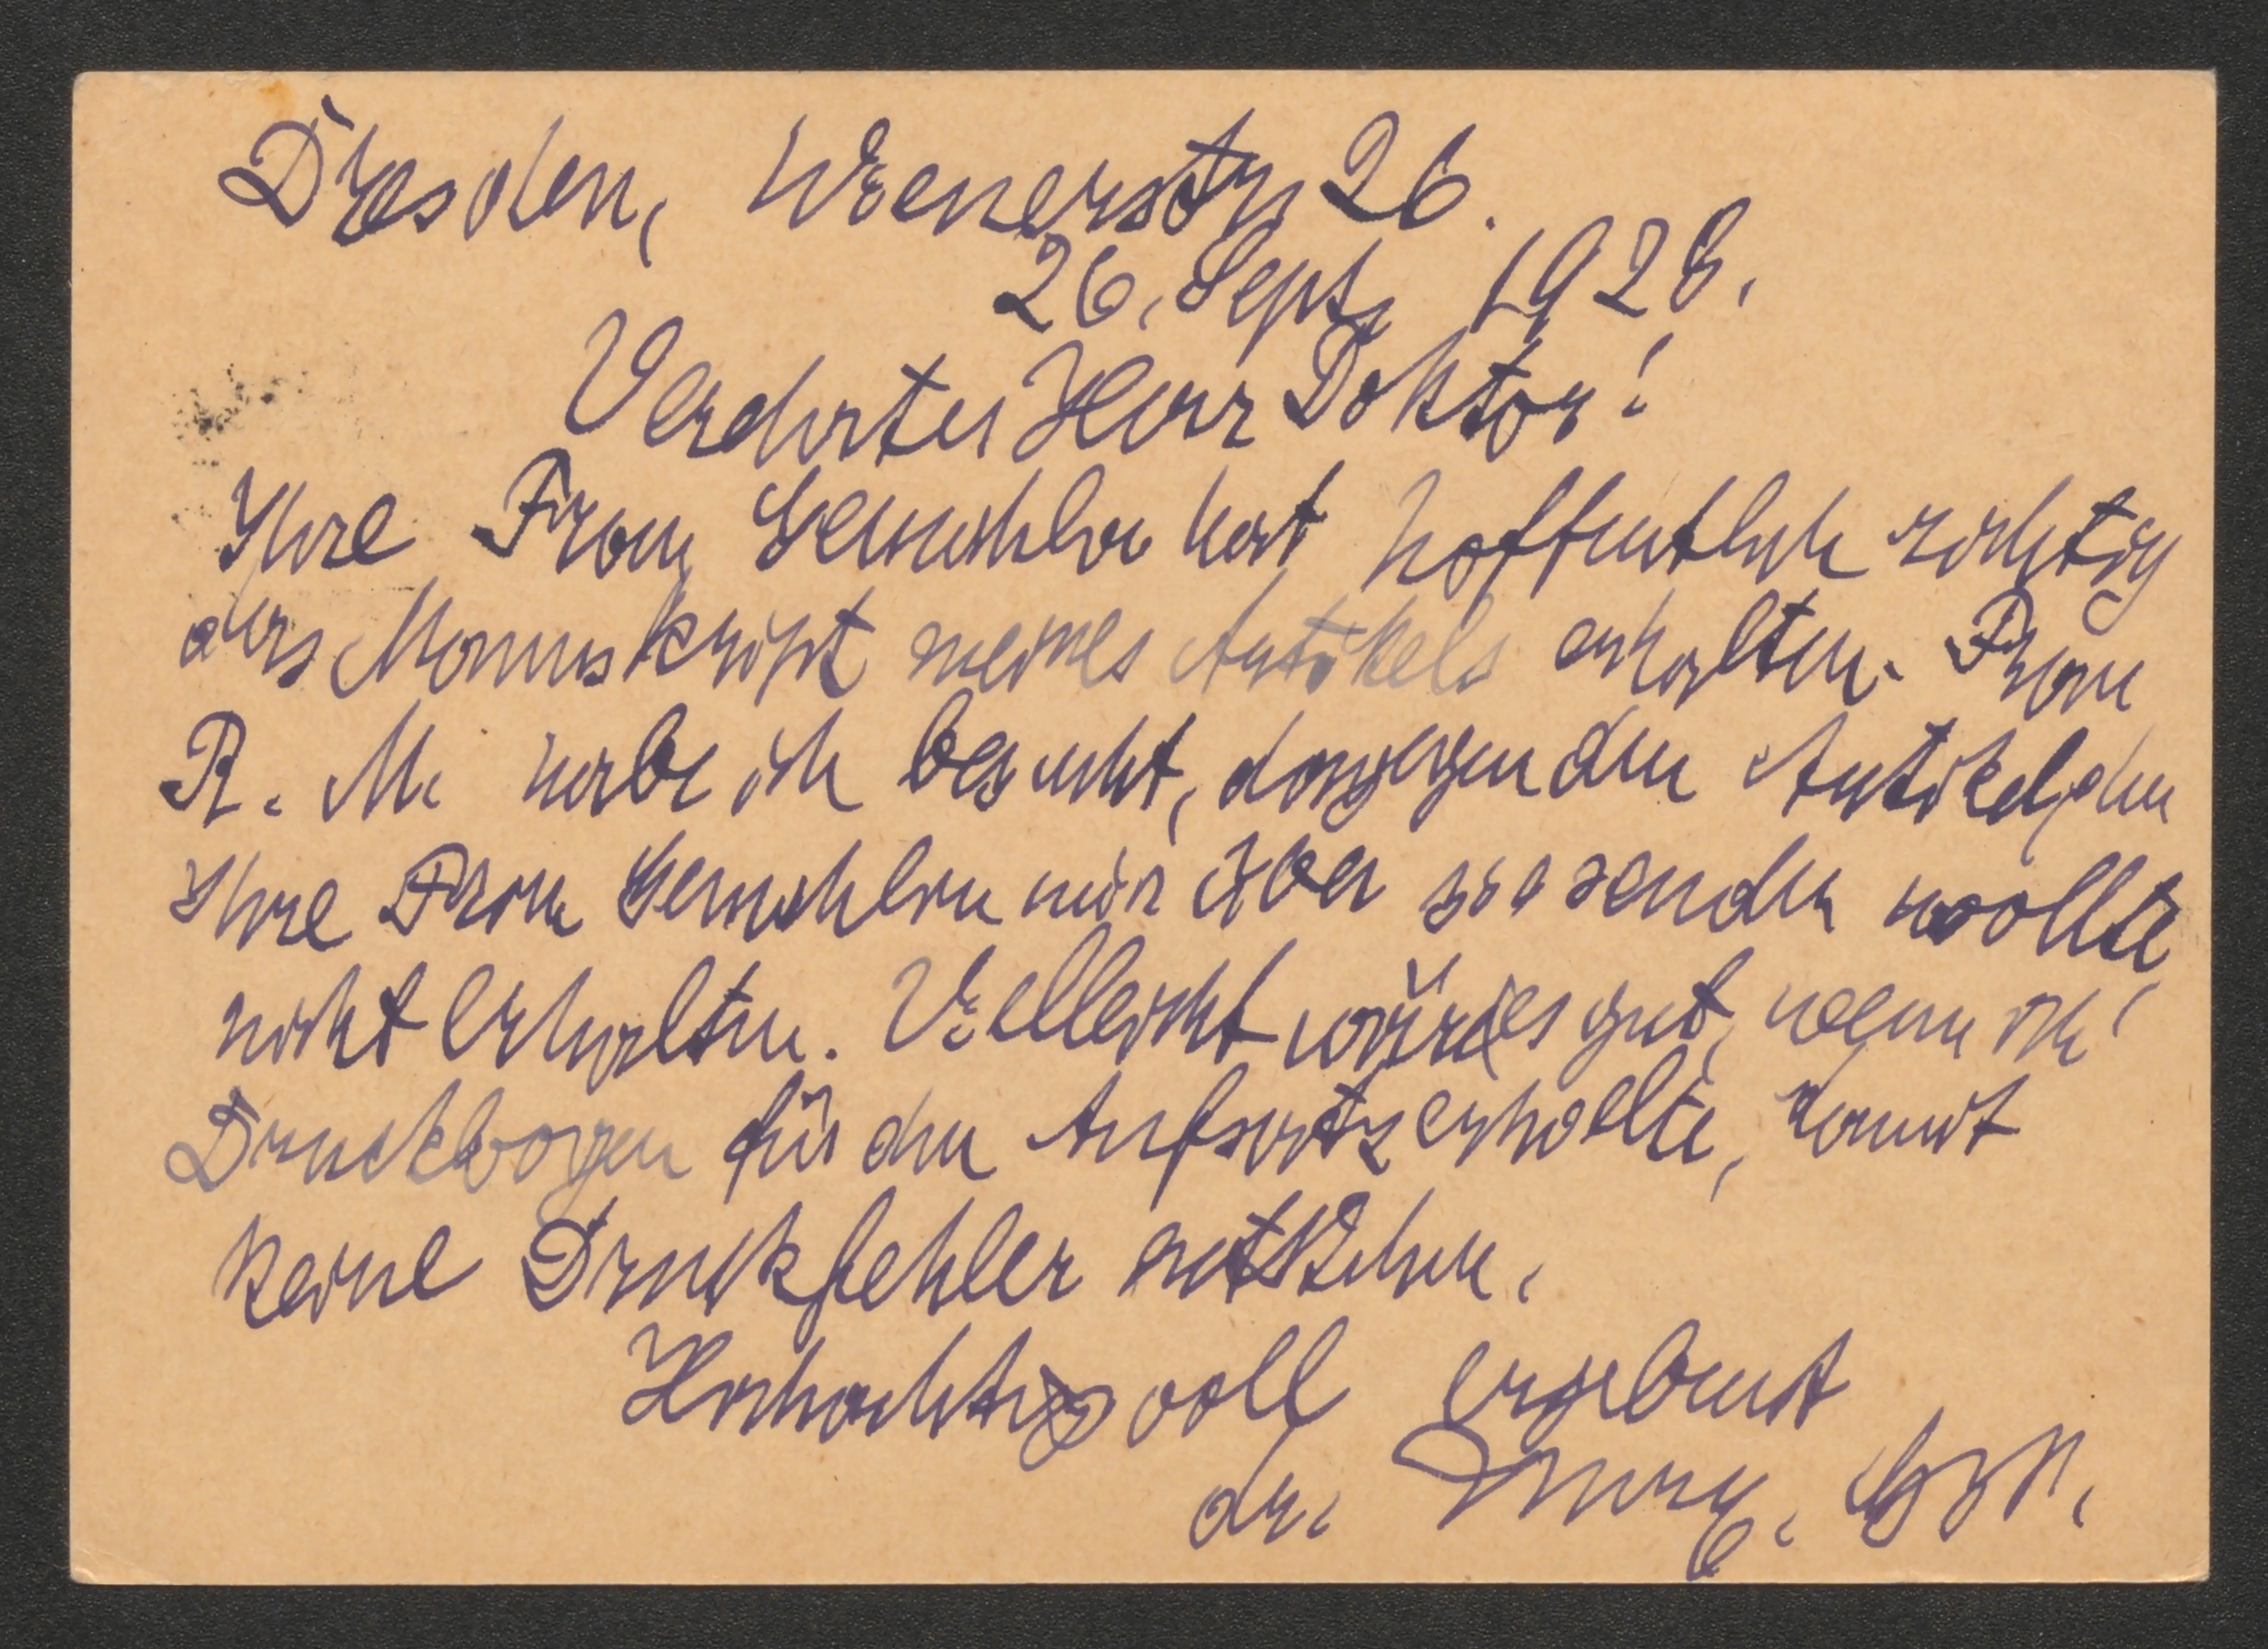 Dresden, Wienerstr 26.
26. Sept. 1928.
Verehrter Herr Doktor!
Ihre Frau Gemahlin hat hoffentlich richtig
das Manuskript meines Artikels erhalten. Frau
R. M. habe ich besucht, dagegen den Artikel, den
Ihre Frau Gemahlin mir über sie senden wollte,
nicht erhalten. Vielleicht wäre es gut, wenn ich
Druckbogen für den Aufsatz erhielte, damit
keine Druckfehler entstehen.
Hochachtungsvoll ergebenst
dr.